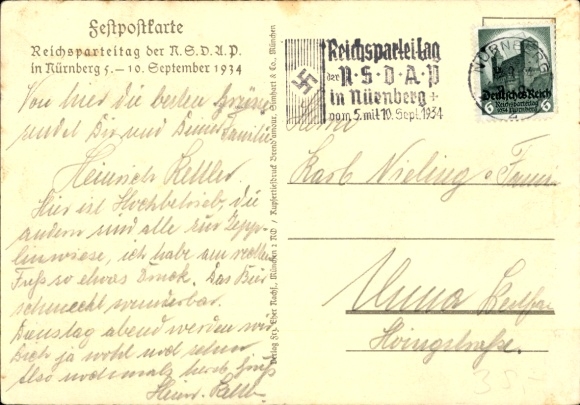 Festpostkarte
Reichsparteitag der N.S.D.A.P.
in Nürnberg 5.–10. September 1934
Von hier die besten Grüße
sendet Dir und Deiner Familie
Heinrich Kettler.
Hier ist Hochbetrieb, die
andern sind alle zur Zepp-
linwiese, ich habe am rechten
Fuß so etwas Druck. Das Bier
schmeckt wunderbar.
Dienstag abend werden wir
Dich ja wohl noch sehen
Also nochmals herzl. Grüß
Heinr. Kettler
Verlag Frz. Eher Nachf., München 2 NO / Kupfertiefdruck Brend'amour, Simhart & Co., München
Reichsparteitag
der N·S·D·A·P
in Nürnberg
vom 5. mit 10. Sept. 1934
NÜRNBERG
2
Deutsches Reich
6 Reichsparteitag 1934 Nürnberg 6
Herrn
Karl Nieling u. Frau
Unna Westfa.
Hoingstraße.
35,-